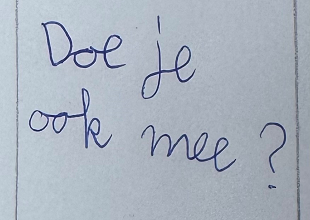 Doe je
ook mee?